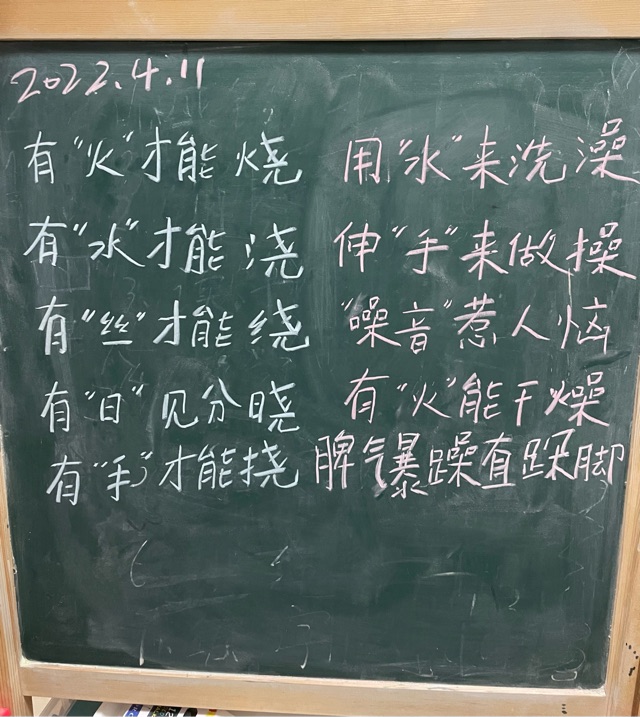 2022.4.11
有"火"才能烧
有"水"才能浇
有"丝"才能绕
有"日"见分晓
有"手"才能挠
用"水"来洗澡
伸"手"来做操
"噪音"惹人恼
有"火"能干燥
脾气暴躁直跺脚